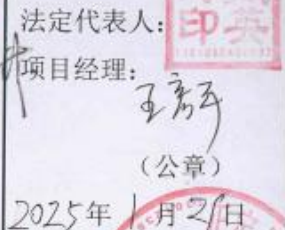 法定代表人：
印英
项目经理：
王彦平
（公章）
2025年1月21日